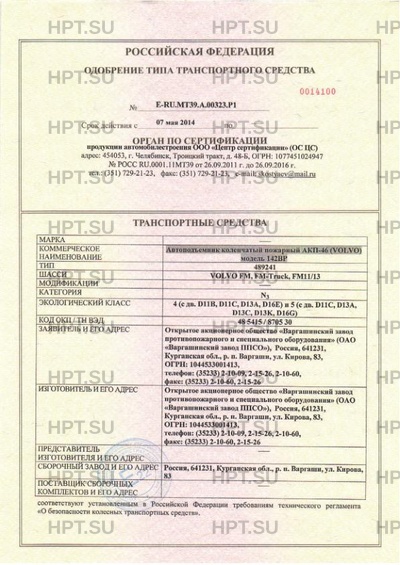 РОССИЙСКАЯ ФЕДЕРАЦИЯ
ОДОБРЕНИЕ ТИПА ТРАНСПОРТНОГО СРЕДСТВА
0014100
№ E-RU.MT39.A.00323.P1
Срок действия с 07 мая 2014 по
ОРГАН ПО СЕРТИФИКАЦИИ
продукции автомобилестроения ООО «Центр сертификации» (ОС ЦС)
адрес: 454053, г. Челябинск, Троицкий тракт, д. 48-Б, ОГРН: 1077451024947
№ РОСС RU.0001.11МТ39 от 26.09.2011 г. до 26.09.2016 г.
тел.: (351) 729-21-23, факс: (351) 729-21-23, e-mail:
ТРАНСПОРТНЫЕ СРЕДСТВА
МАРКА
КОММЕРЧЕСКОЕ НАИМЕНОВАНИЕ Автоподъемник коленчатый пожарный АКП-46 (VOLVO)
модель 142ВР
ТИП 489241
ШАССИ VOLVO FM, FM-Truck, FM11/13
МОДИФИКАЦИИ
КАТЕГОРИЯ N3
ЭКОЛОГИЧЕСКИЙ КЛАСС 4 (с дв. D11B, D11C, D13A, D16E) и 5 (с дв. D11C, D13A,
D13C, D13K, D16G)
КОД ОКП / ТН ВЭД 48 5415 / 8705 30
ЗАЯВИТЕЛЬ И ЕГО АДРЕС Открытое акционерное общество «Варгашинский завод
противопожарного и специального оборудования» (ОАО
«Варгашинский завод ППСО»), Россия, 641231,
Курганская обл., р. п. Варгаши, ул. Кирова, 83,
ОГРН: 1044533001413,
телефон: (35233) 2-10-09, 2-15-26, 2-10-60,
факс: (35233) 2-10-60, 2-15-26
ИЗГОТОВИТЕЛЬ И ЕГО АДРЕС Открытое акционерное общество «Варгашинский завод
противопожарного и специального оборудования» (ОАО
«Варгашинский завод ППСО»), Россия, 641231,
Курганская обл., р. п. Варгаши, ул. Кирова, 83,
ОГРН: 1044533001413,
телефон: (35233) 2-10-09, 2-15-26, 2-10-60,
факс: (35233) 2-10-60, 2-15-26
ПРЕДСТАВИТЕЛЬ
ИЗГОТОВИТЕЛЯ И ЕГО АДРЕС
СБОРОЧНЫЙ ЗАВОД И ЕГО АДРЕС Россия, 641231, Курганская обл., р. п. Варгаши, ул. Кирова,
83
ПОСТАВЩИК СБОРОЧНЫХ
КОМПЛЕКТОВ И ЕГО АДРЕС
соответствуют установленным в Российской Федерации требованиям технического регламента
«О безопасности колесных транспортных средств».
HPT.SU